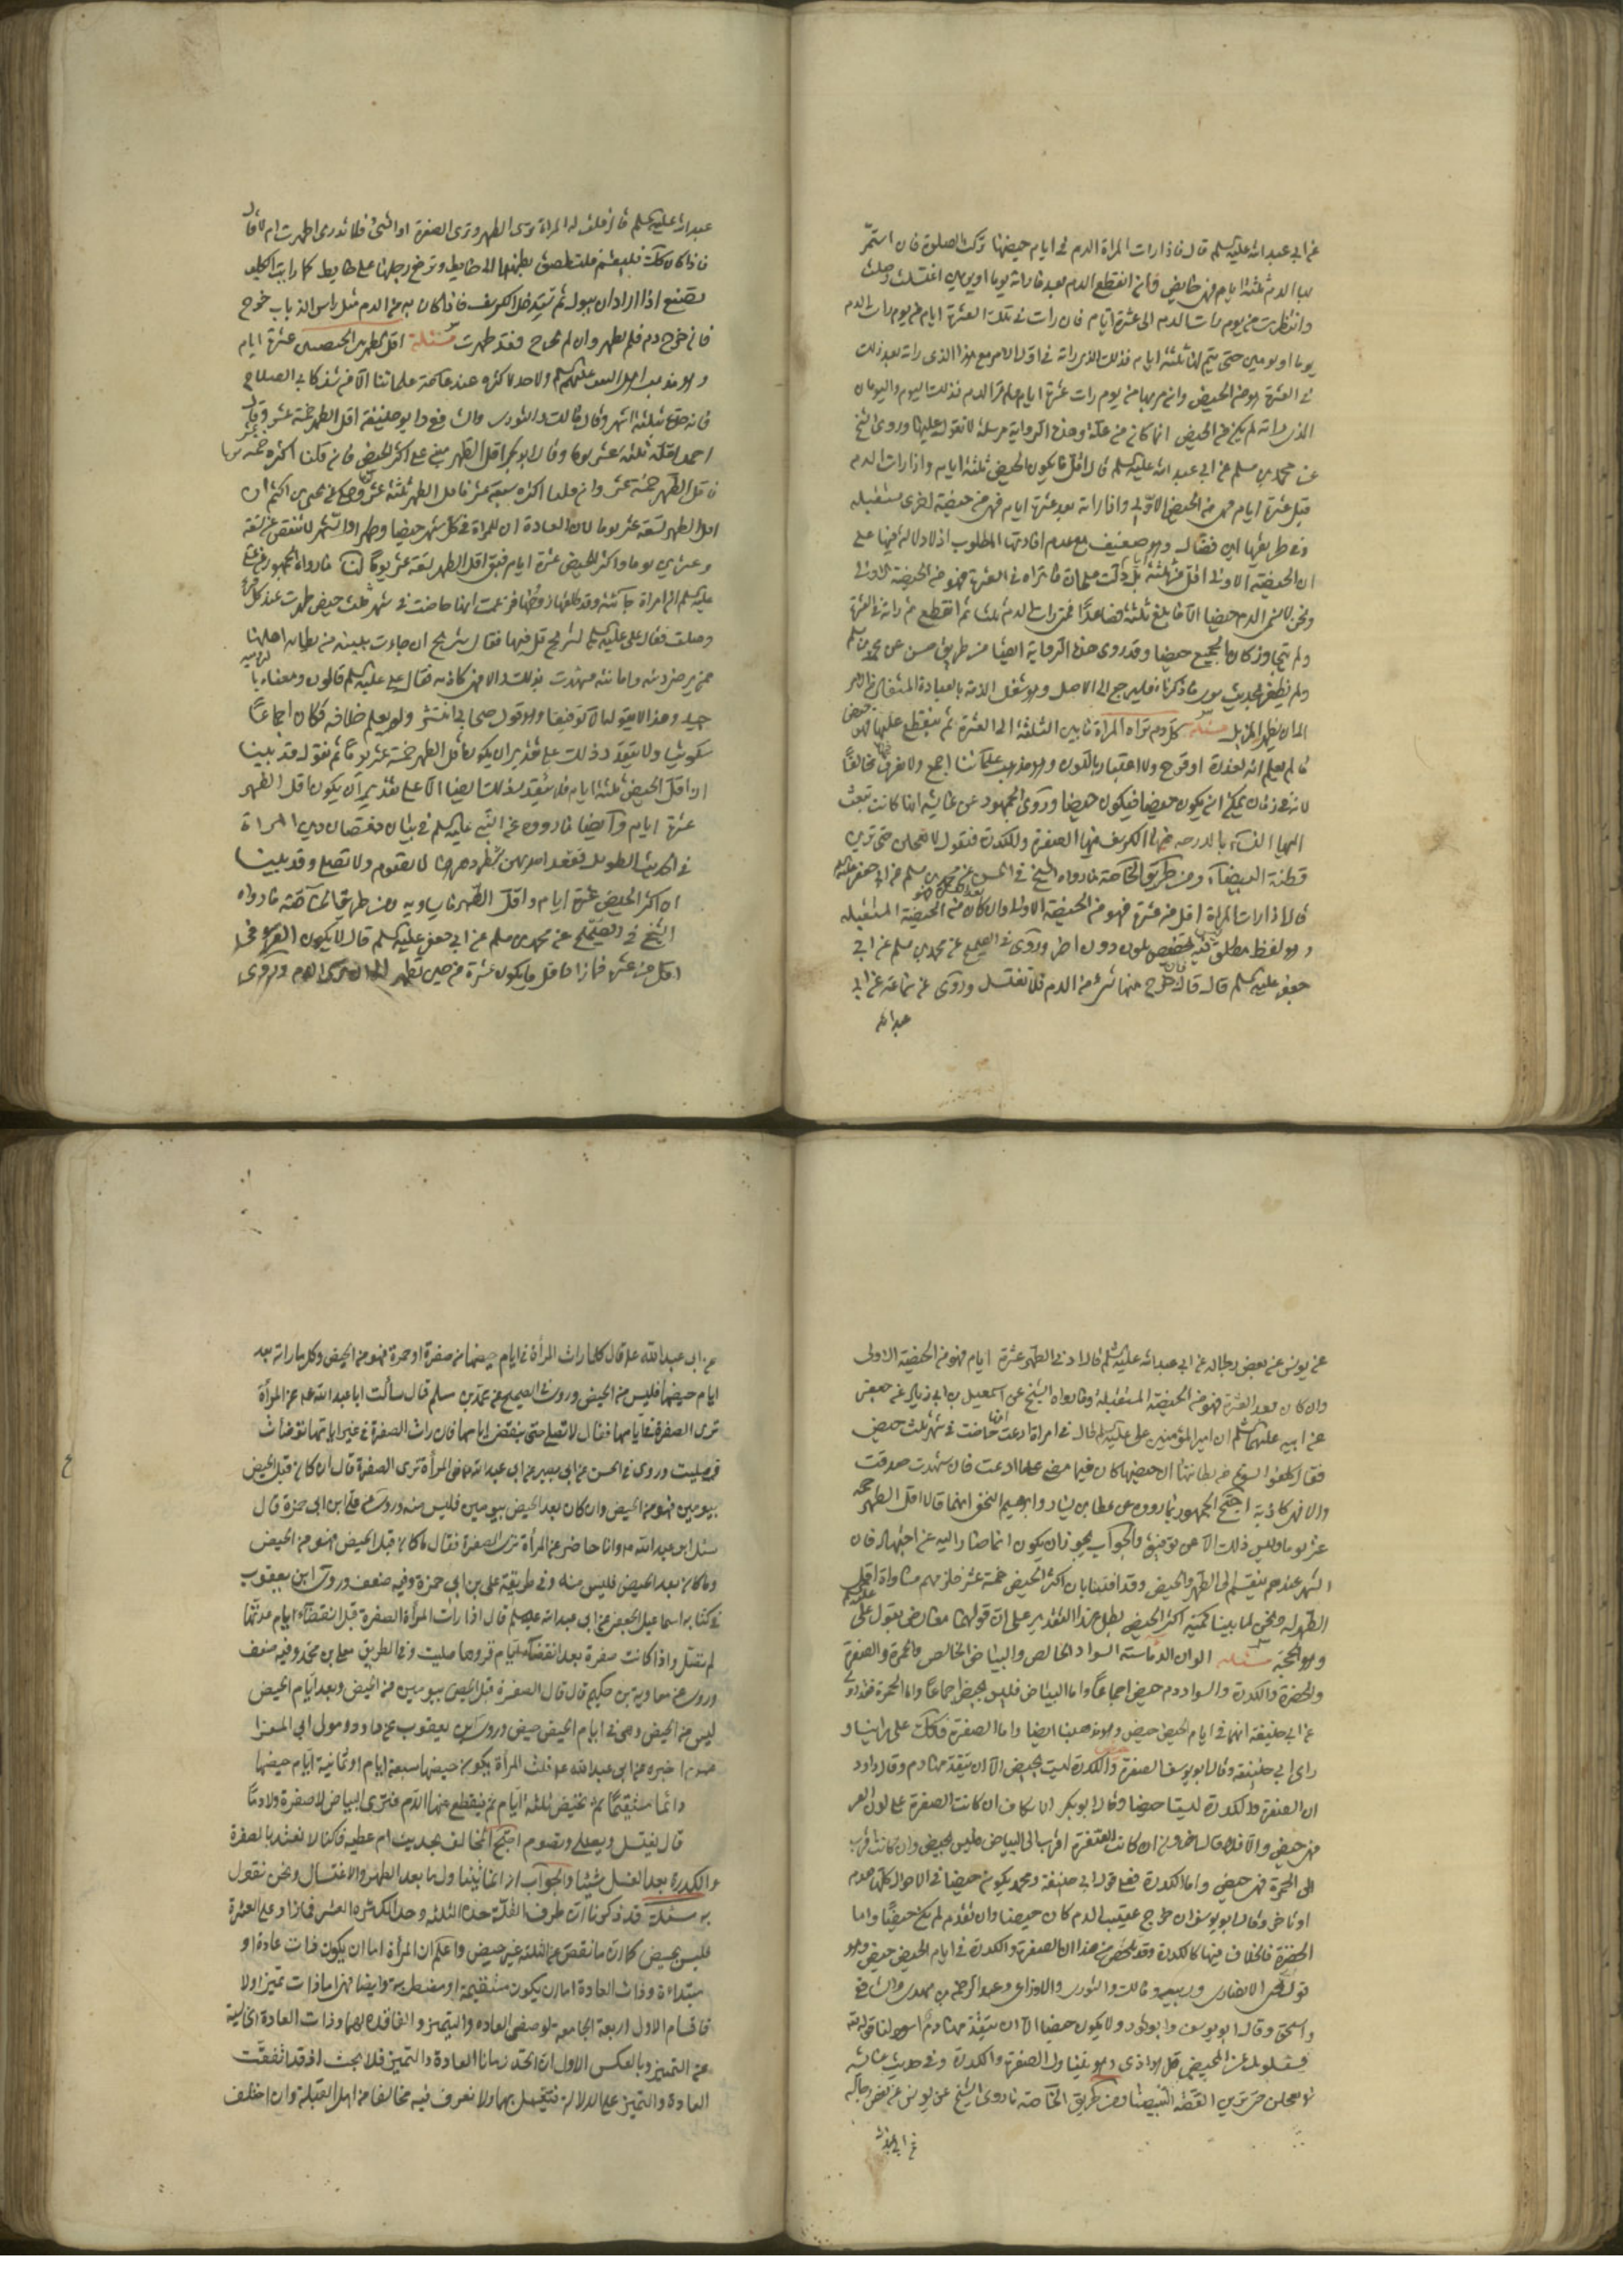 عن ابي عبد الله عليه السلم قال فاذا رات المراة الدم في ايام حيضها تركت الصلوة فان استمر
بها الدم ثلثة ايام فهي حايض فان انقطع الدم بعد ما راته يوما او يومين اغتسلت وصلت
وانتظرت من يوم رات الدم الى عشرة ايام فان رات في تلك العشرة ايام من يوم رات الدم
يوما او يومين حتى يتم لها ثلثة ايام فذلك الذي راته في اول الامر مع هذا الذي راته بعد ذلك
في العشرة هو من الحيض وان مر بها من يوم رات عشرة ايام ولم تر الدم فذلك اليوم واليومان
الذي راته لم يكن من الحيض انما كان من علة وهذه الرواية مرسلة لا تعويل عليها وروى الشيخ
عن محمد بن مسلم عن ابي عبد الله عليه السلم قال اقل ما يكون الحيض ثلثة ايام واذا رات الدم
قبل عشرة ايام فهي من الحيض الاولى واذا راته بعد عشرة ايام فهي من حيضة اخرى مستقبله
وفي طريقها ابن فضال وهو ضعيف مع عدم افادتها المطلوب اذ لا دلالة فيها على
ان الحيضة الاولى اقل من ثلثة بل دلت على ان ما تراه في العشرة فهو من الحيضة الاولى
ونحن لا نسمي الدم حيضا الا ما بلغ ثلثة فصاعدا فمتى رات الدم ثلثا ثم انقطع ثم راته في العشرة
ولم يتجاوز كان الجميع حيضا وقد روى هذه الرواية ايضا من طريق حسن عن محمد بن مسلم
ولم نظفر بحديث سوى ما ذكرناه فليرجع الى الاصل وهو شغل الذمة بالعبادة
الى ان يظهر المزيل مسئلة كل دم تراه المراة ما بين الثلثة الى العشرة ثم ينقطع عليها فهو حيض
ما لم يعلم انه لعذرة او قرح ولا اعتبار باللون وهو مذهب علمائنا اجمع ولا نعرف مخالفا
لانه في زمان يمكن ان يكون حيضا فيكون حيضا وروى الجمهور عن عايشة انها كانت تبعث
اليها النساء بالدرجة فيها الكرسف فيها الصفرة والكدرة فتقول لا تعجلن حتى ترين
القطنة البيضاء ومن طريق الخاصة ما رواه الشيخ في الحسن عن محمد بن مسلم عن ابي جعفر عليه
قال اذا رات المراة اقل من عشرة فهو من الحيضة الاولى وان كان بعد العشرة فهو من الحيضة المستقبله
وهو لفظ مطلق فيه تخصيص بلون دون اخر وروى في الصحيح عن محمد بن مسلم عن ابي
جعفر عليه السلم قال فان خرج منها شيء من الدم فلا تغتسل وروى عن سماعة عن ابي
عبد الله
عبد الله عليه السلم قال قلت له المراة ترى الطهر وترى الصفرة او الشيء فلا تدري اطهرت ام لا قال
فاذا كان كذلك فليقم فلتلصق بطنها الى حايط وترفع رجلها على حايط كما رايت الكلب
يصنع اذا اراد ان يبول ثم تستدخل الكرسف فاذا كان به من الدم مثل راس الذباب خرج
فان خرج دم فلم تطهر وان لم يخرج فقد طهرت مسئلة اقل الطهر بين الحيضتين عشرة ايام
وهو مذهب اهل البيت عليهم السلم ولا حد لاكثره عند عامة علمائنا الا من شذ كابي الصلاح
فانه حده بثلثة اشهر وقال مالك والثوري والشافعي وابو حنيفة اقل الطهر خمسة عشر وقال
احمد اقله ثلثة عشر يوما وقال ابو بكر اقل الطهر مبني على اكثر الحيض فان قلنا اكثره خمسة عشر يوما
فاقل الطهر خمسة عشر وان قلنا اكثره سبعة عشر فاقل الطهر ثلثة عشر وحكي عن يحيى بن اكثم ان
اقل الطهر تسعة عشر يوما لان العادة ان للمراة في كل شهر حيضا وطهرا والشهر لا ينقص عن تسعة
وعشرين يوما واكثر الحيض عشرة ايام فبقي اقل الطهر تسعة عشر يوما لنا ما رواه الجمهور عن علي
عليه السلم ان امراة جاءته وقد طلقها زوجها فزعمت انها حاضت في شهر ثلث حيض طهرت عند كل قرء
وصلت فقال علي عليه السلم لشريح قل فيها فقال شريح ان جاءت ببينة من بطانة اهلها
ممن يرضى دينه وامانته شهدت بذلك والا فهي كاذبة فقال علي عليه السلم قالون ومعناه بالرومية
جيد وهذا لا يقوله الا توقيفا وهو قول صحابي انتشر ولم يعلم خلافه فكان اجماعا
سكوتيا ولا ينعقد ذلك على تقدير ان يكون اقل الطهر خمسة عشر يوما ثم نقول قد بينا
ان اقل الحيض ثلثة ايام فلا ينعقد ذلك ايضا الا على تقدير ان يكون اقل الطهر
عشرة ايام وايضا ما رووه عن النبي عليه السلم في بيان نقصان دين المراة
في الحديث الطويل تقعد احديهن شطر دهرها لا تصوم ولا تصلي وقد بينا
ان اكثر الحيض عشرة ايام واقل الطهر ما يساويه ومن طريق الخاصة ما رواه
الشيخ في الصحيح عن محمد بن مسلم عن ابي جعفر عليه السلم قال لا يكون القرء في
اقل من عشرة فما زاد اقل ما يكون عشرة من حين تطهر الى ان ترى الدم وروى
عن يونس عن بعض رجاله عن ابي عبد الله عليه السلم قال ادنى الطهر عشرة ايام فهو من الحيضة الاولى
وان كان بعد العشرة فهو من الحيضة المستقبلة وما رواه الشيخ عن اسمعيل بن ابي زياد عن جعفر
عن ابيه عليهما السلم ان امير المؤمنين علي عليه السلم قال في امراة ادعت انها حاضت في شهر ثلث حيض
فقال كلفوا نسوة من بطانتها ان حيضها كان فيما مضى على ما ادعت فان شهدت صدقت
والا فهي كاذبة احتج الجمهور بما رووه عن عطا بن يسار وابراهيم النخعي انهما قالا اقل الطهر خمسة
عشر يوما وليس ذلك الا عن توقيف والجواب يجوز ان يكون انما صارا اليه عن اجتهاد فان
الشهر عندهم ينقسم الى الطهر والحيض وقد افتينا بان اكثر الحيض خمسة عشر فلزمهم مساواة اقل
الطهر له ونحن لما بينا كمية اكثر الحيض بطل هذا التقدير على ان قولهما معارض بقول علي عليه السلم
وهو الحجة مسئلة الوان الدماء ستة السواد الخالص والبياض الخالص والحمرة والصفرة
والخضرة والكدرة والسواد دم حيض اجماعا واما البياض فليس بحيض اجماعا واما الحمرة فقد روي
عن ابي حنيفة انها في ايام الحيض حيض وهو مذهبنا ايضا واما الصفرة فكذلك على راينا و
راى ابي حنيفة وقال ابو يوسف الصفرة حيض والكدرة ليست بحيض الا ان يتقدمها دم وقال داود
ان الصفرة والكدرة ليستا حيضا وقال ابو بكر الاسكاف ان كانت الصفرة على لون القز
فهي حيض والا فلا وقال اخرون ان كانت الصفرة اقرب الى البياض فليس بحيض وان كانت اقرب
الى الحمرة فهي حيض واما الكدرة فعلى قول ابي حنيفة ومحمد يكون حيضا في الاحوال كلها تقدم
او تاخر وقال ابو يوسف ان خرج عقيب الدم كان حيضا وان تقدم لم يكن حيضا واما
الخضرة فالخلاف فيها كالكدرة وقد تلخص من هذا ان الصفرة والكدرة في ايام الحيض حيض وهو
قول يحيى الانصاري وربيعة ومالك والثوري والاوزاعي وعبد الرحمن بن مهدي والشافعي
واسحق وقال ابو يوسف وابو ثور ولا يكون حيضا الا ان يتقدمها دم اسود لنا قوله تعه
يسئلونك عن المحيض قل هو اذى وهو يتناول الصفرة والكدرة وفي حديث عايشه
لا تعجلن حتى ترين القصة البيضاء ومن طريق الخاصة ما روى الشيخ عن يونس عن بعض رجاله
عن ابي عبد الله
عن ابي عبد الله ع قال كلما رات المرأة في ايام حيضها من صفرة او حمرة فهو من الحيض وكل ما راته بعد
ايام حيضها فليس من الحيض وروى في الصحيح عن محمد بن مسلم قال سألت ابا عبد الله ع عن المرأة
ترى الصفرة في ايامها فقال لا تصلي حتى تنقضي ايامها فان رات الصفرة في غير ايامها توضأت
وصليت وروى في الحسن عن ابي بصير عن ابي عبد الله ع في المرأة ترى الصفرة قال ان كان قبل الحيض
بيومين فهو من الحيض وان كان بعد الحيض بيومين فليس منه وروى عن علي ابن ابي حمزة قال
سئل ابو عبد الله ع وانا حاضر عن المرأة ترى الصفرة فقال ما كان قبل الحيض فهو من الحيض
وما كان بعد الحيض فليس منه وفي طريقه علي بن ابي حمزة وفيه ضعف وروى ابن يعقوب
في كتابه اسماعيل الجعفي عن ابي عبد الله عليه السلم قال اذا رات المرأة الصفرة قبل انقضاء ايام عدتها
لم تصل واذا كانت صفرة بعد انقضاء ايام قروها صليت وفي الطريق معلى بن محمد وفيه ضعف
وروى عن معاوية بن حكيم قال قال الصفرة قبل الحيض بيومين من الحيض وبعد ايام الحيض
ليس من الحيض وهي في ايام الحيض حيض وروى ابن يعقوب عن داود مولى ابي المعزا
عمن اخبره عن ابي عبد الله ع قلت المرأة يكون حيضها سبعة ايام او ثمانية ايام حيضها
دائما مستقيما ثم تحيض ثلثة ايام ثم ينقطع عنها الدم فترى البياض لا صفرة ولا دما
قال تغتسل وتصلي وتصوم احتج المخالف بحديث ام عطية كنا لا نعتد بالصفرة
والكدرة بعد الغسل شيئا والجواب انه انما يتناول ما بعد الطهر والاغتسال ونحن نقول
به مسئلة قد ذكرنا ان طرف القلة حده الثلثة وحد الكثرة العشر فما زاد على العشرة
فليس بحيض كما ان ما نقص عن الثلثة غير حيض واعلم ان المرأة اما ان يكون ذات عادة او
مبتداءة وذات العادة اما ان يكون مستقيمة او مضطربة وايضا فهي اما ذات تميز او لا
فاقسام الاول اربعة الجامعة لوصفي العادة والتميز والفاقدة لهما وذات العادة الخالية
عن التميز وبالعكس الاول ان اتحد زمانا العادة والتميز فلا بحث اذ قد اتفقت
العادة والتميز على الدلالة فيعمل بهما ولا نعرف فيه مخالفا من اهل القبلة وان اختلف